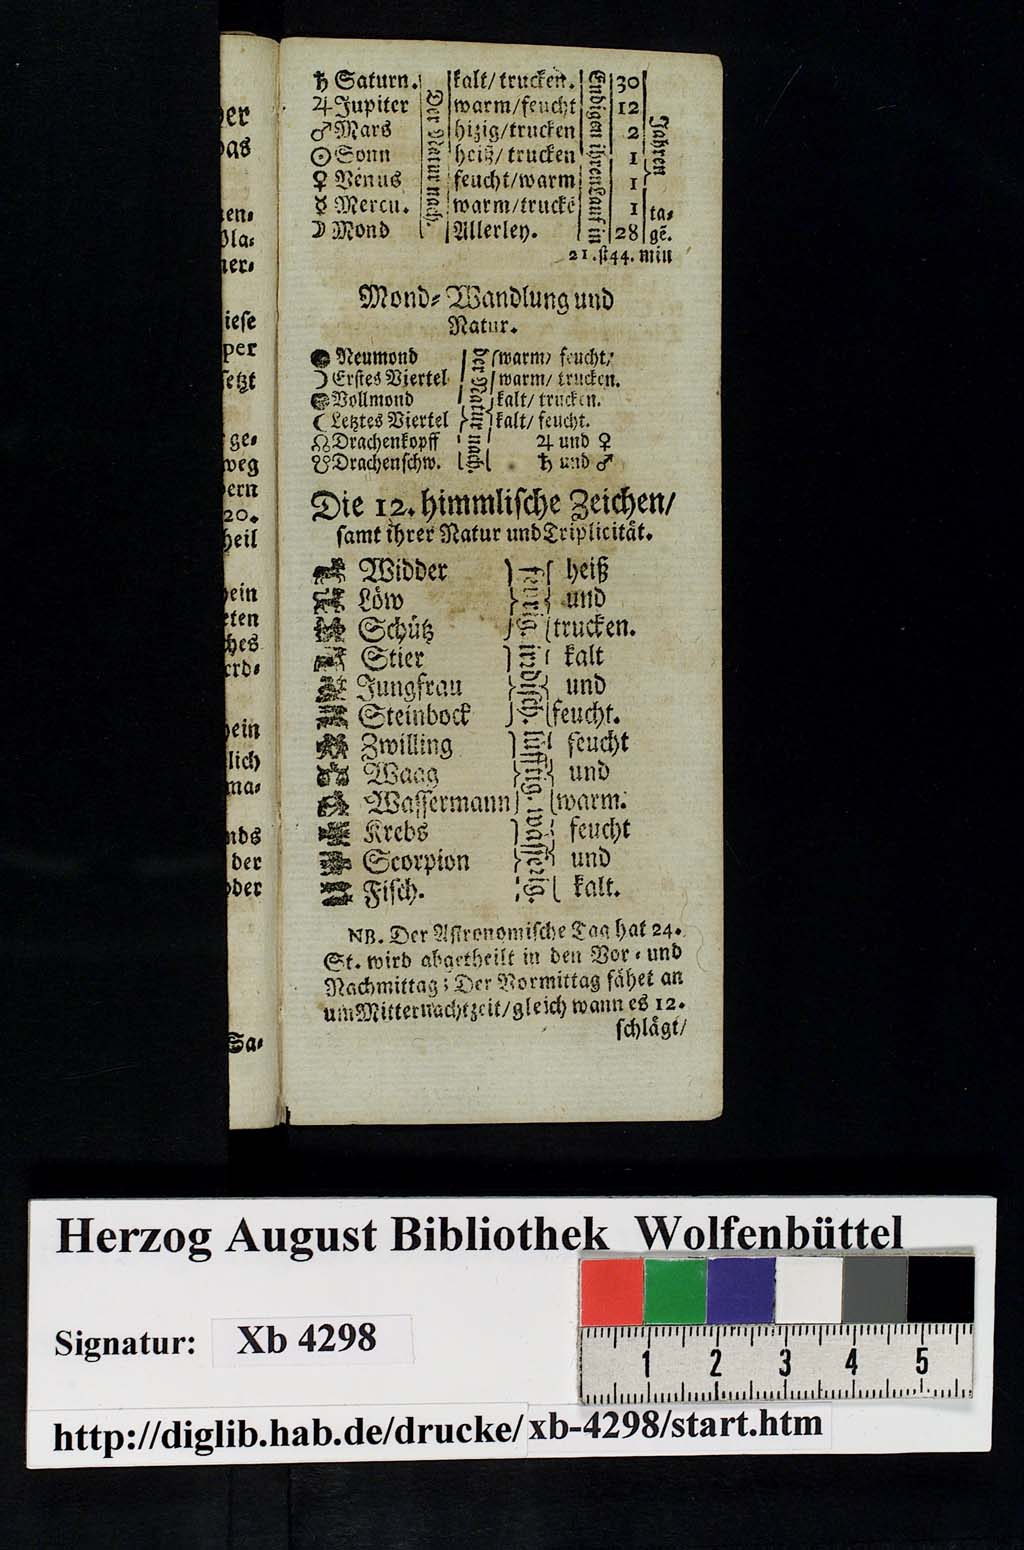 ♄ Saturn. kalt/ trucken. 30
♃ Jupiter warm/feucht 12
♂ Mars hizig/trucken 2
☉ Sonn heiß/ trucken 1
♀ Venus feucht/warm 1
☿ Mercu. warm/truckē 1 ta⸗
☽ Mond Allerley. 28 gē.
Der Natur nach.
Endigen ihren Lauf in
Jahren
21.st 44. min
Mond⸗ Wandlung und
Natur.
Neumond warm/ feucht/
☽ Erstes Viertel warm/ trucken.
Vollmond kalt/ trucken.
☾ Letztes Viertel kalt/ feucht.
☊ Drachenkopff ♃ und ♀
☋ Drachenschw. ♄ und ♂
der Natur nach.
Die 12. himmlische Zeichen/
samt ihrer Natur und Triplicität.
Widder heiß
Löw und
Schütz trucken.
feurig.
Stier kalt
Jungfrau und
Steinbock feucht.
irrdisch.
Zwilling feucht
Waag und
Wassermann warm.
lufftig.
Krebs feucht
Scorpion und
Fisch. kalt.
wässerig.
NB. Der Astronomische Tag hat 24.
St. wird abgetheilt in den Vor⸗ und
Nachmittag; Der Vormittag fähet an
um Mitternachtzeit/ gleich wann es 12.
schlägt/
der
das
en⸗
Pla⸗
ner⸗
iese
per
setzt
ge⸗
weg
dern
20.
heil
hein
eten
ches
erd⸗
hein
lich
ma⸗
nds
der
oder
Sa⸗
Herzog August Bibliothek Wolfenbüttel
Signatur: Xb 4298
1 2 3 4 5
http://diglib.hab.de/drucke/xb-4298/start.htm